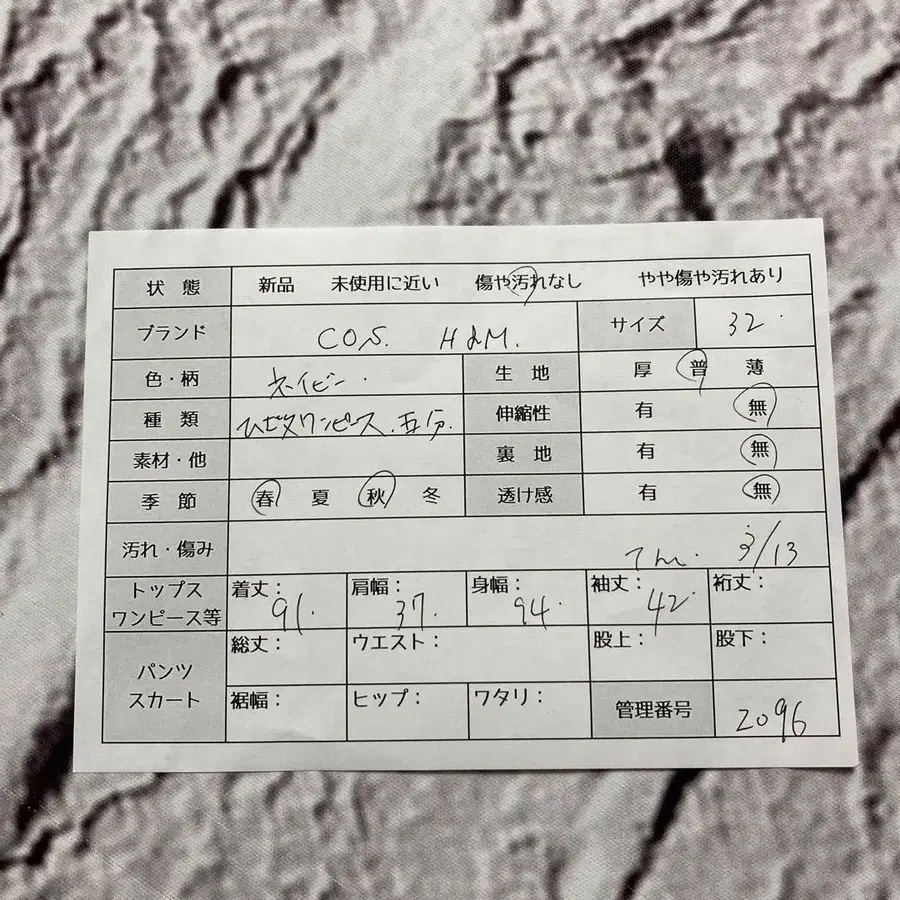 状 態 新品 未使用に近い 傷や汚れなし やや傷や汚れあり
ブランド COS. H&M. サイズ 32
色・柄 ネイビー 生 地 厚 普 薄
種 類 ひざ丈ワンピース.五分. 伸縮性 有 無
素材・他 裏 地 有 無
季 節 春 夏 秋 冬 透け感 有 無
汚れ・傷み 3/13
トップス ワンピース等 着丈: 91. 肩幅: 37. 身幅: 94. 袖丈: 42. 裄丈:
パンツ スカート 総丈: ウエスト: 股上: 股下:
裾幅: ヒップ: ワタリ: 管理番号 2096